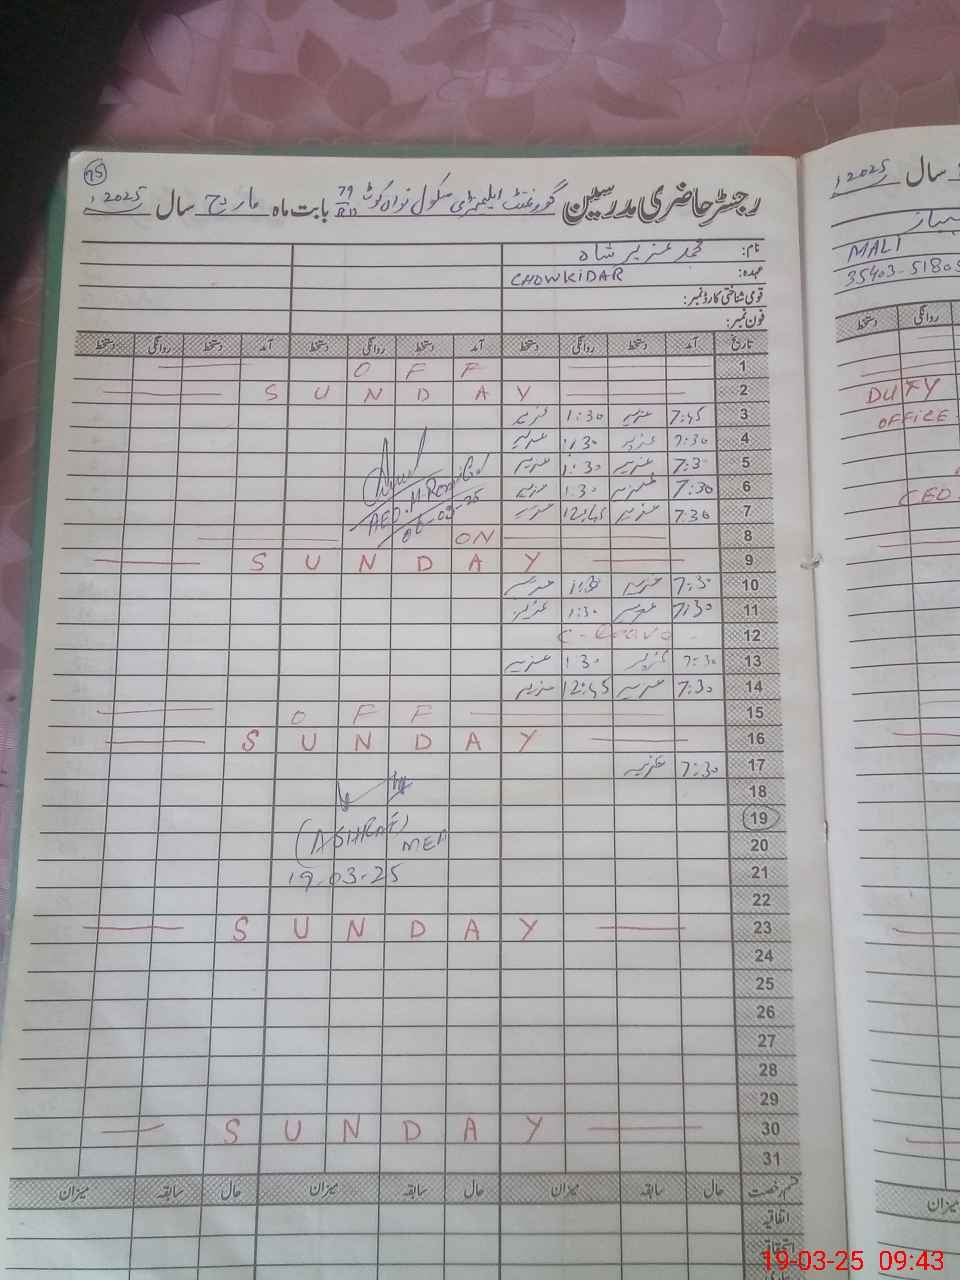 75
رجسٹر حاضری مدرسین گورنمنٹ ایلیمنٹری سکول نواں کوٹ 79 بابت ماہ مارچ سال 2025ء
نام: محمد عزیر شاہ
عہدہ: CHOWKIDAR
قومی شناختی کارڈ نمبر:
فون نمبر:
تاریخ آمد دستخط روانگی دستخط آمد دستخط روانگی دستخط آمد دستخط روانگی دستخط
1 OFF
2 SUNDAY
3 7:45 عزیر 1:30 عزیر
4 7:30 عزیر 1:30 عزیر
5 7:30 عزیر 1:30 عزیر
6 7:30 عزیر 1:30 عزیر
7 7:30 عزیر 12:45 عزیر
AEO.
06-03-25
8 ON
9 SUNDAY
10 7:30 عزیر 1:30 عزیر
11 7:30 عزیر 1:30 عزیر
12 C-Leave
13 7:30 عزیر 1:30 عزیر
14 7:30 عزیر 12:45 عزیر
15 OFF
16 SUNDAY
17 7:30 عزیر
18
19
20
(ASHRAF) MEA
21
19-03-25
22
23 SUNDAY
24
25
26
27
28
29
30 SUNDAY
31
قسم رخصت حال سابقہ میزان حال سابقہ میزان حال سابقہ میزان
اتفاقیہ
استحقاقیہ
سال 2025ء
MALI
35403-5180
روانگی دستخط
DUTY
OFFICE
CEO
میزان
19-03-25 09:43